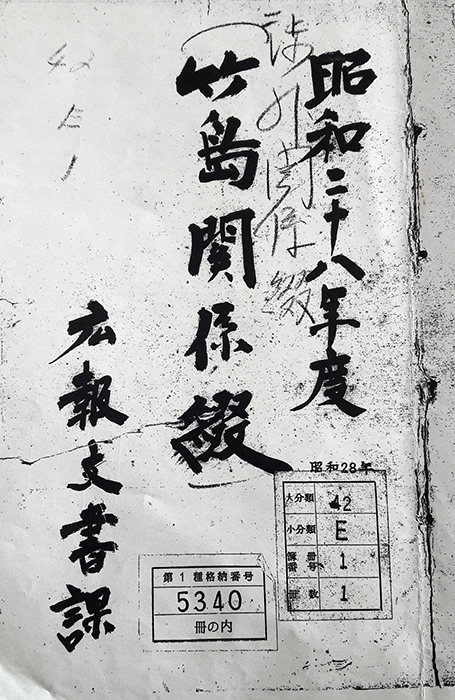 昭和二十八年度
渉外関係綴
竹島関係綴
広報文書課
42
E
1
昭和28年
大分類 42
小分類 E
簿冊番号 1
冊数 1
第1種格納番号
5340
冊の内